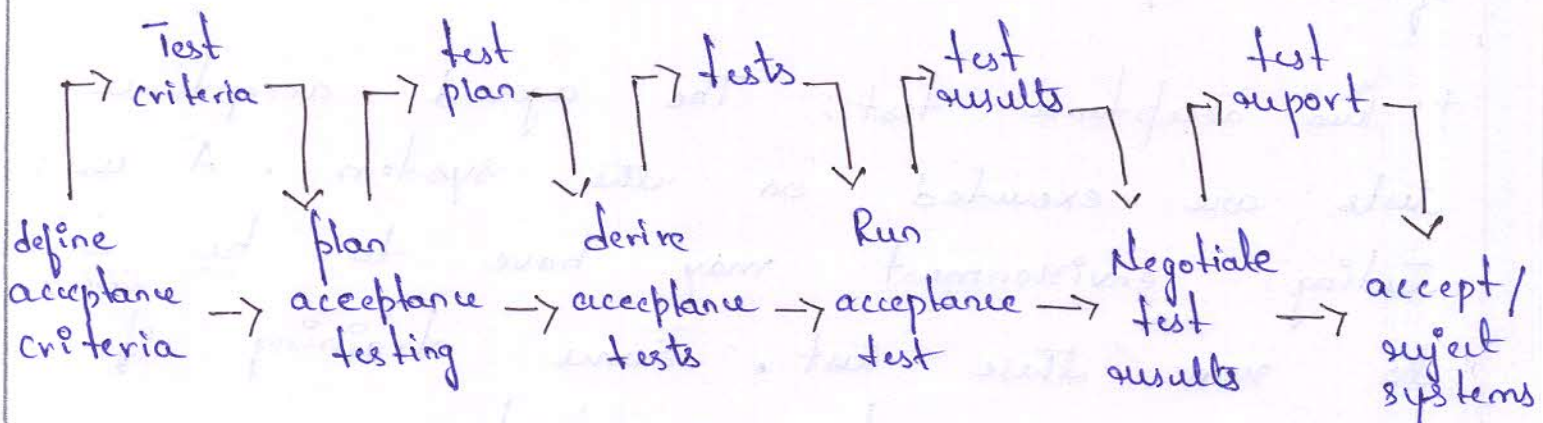 Test
criteria
test
plan
tests
test
results
test
report
define
acceptance
criteria
plan
acceptance
testing
derive
acceptance
tests
Run
acceptance
test
Negotiate
test
results
accept/
reject
systems